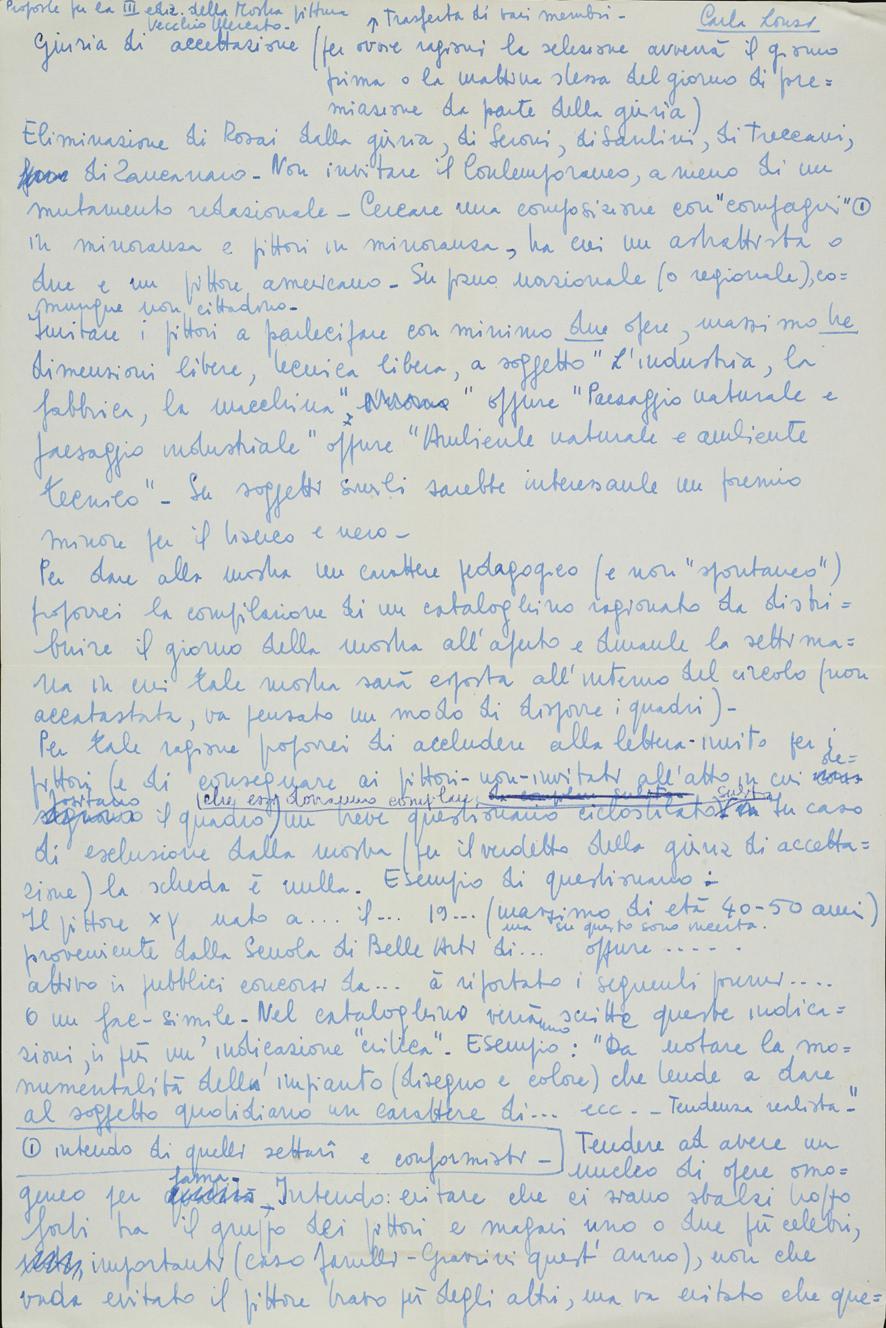 Proposte per la III ediz. della Mostra pittura
Vecchio Mercato -
↗ Trasferta di vari membri -
Carla Lonzi
Giuria di accettazione (per ovvie ragioni la selezione avverrà il giorno
prima o la mattina stessa del giorno di pre=
miazione da parte della giuria)
Eliminazione di Rosai dalla giuria, di Seroni, di Santini, di Treccani,
di Zancanaro - Non invitare il Contemporaneo, a meno di un
mutamento redazionale - Cercare una composizione con "compagni" ①
in minoranza e pittori in minoranza, tra cui un astrattista o
due e un pittore americano - Su piano nazionale (o regionale), co=
munque non cittadino -
Invitare i pittori a partecipare con minimo due opere, massimo tre
dimensioni libere, tecnica libera, a soggetto "L'industria, la
fabbrica, la macchina", " oppure "Paesaggio naturale e
paesaggio industriale" oppure "Ambiente naturale e ambiente
tecnico" - Su soggetti simili sarebbe interessante un premio
minore per il bianco e nero -
Per dare alla mostra un carattere pedagogico (e non "spontaneo")
proporrei la compilazione di un cataloghino ragionato da distri=
buire il giorno della mostra all'aperto e durante la settima=
na in cui tale mostra sarà esposta all'interno del circolo (non
accatastata, va pensato un modo di disporre i quadri) -
Per tale ragione proporrei di accludere alla lettera-invito per i
pittori (e di consegnare ai pittori-non-invitati all'atto in cui de=
positano il quadro) un breve questionario ciclostilato (che essi dovranno compilare subito). In caso
di esclusione dalla mostra (per il verdetto della giuria di accetta=
zione) la scheda è nulla. Esempio di questionario:
Il pittore xy nato a... il... 19... (massimo di età 40-50 anni)
ma su questo sono incerta.
proveniente dalla Scuola di Belle Arti di... oppure .....
attivo in pubblici concorsi da... à riportato i seguenti premi....
O un fac-simile - Nel cataloghino verranno scritte queste indica=
zioni, in più un'indicazione "critica". Esempio: "Da notare la mo=
numentalità dell'impianto (disegno e colore) che tende a dare
al soggetto quotidiano un carattere di... ecc. - Tendenza realista -"
① intendo di quelli settari e conformisti -
Tendere ad avere un
nucleo di opere omo=
geneo per fama - Intendo: evitare che ci siano sbalzi troppo
forti tra il gruppo dei pittori e magari uno o due più celebri,
importanti (caso quest'anno), non che
vada evitato il pittore bravo più degli altri, ma va evitato che que=